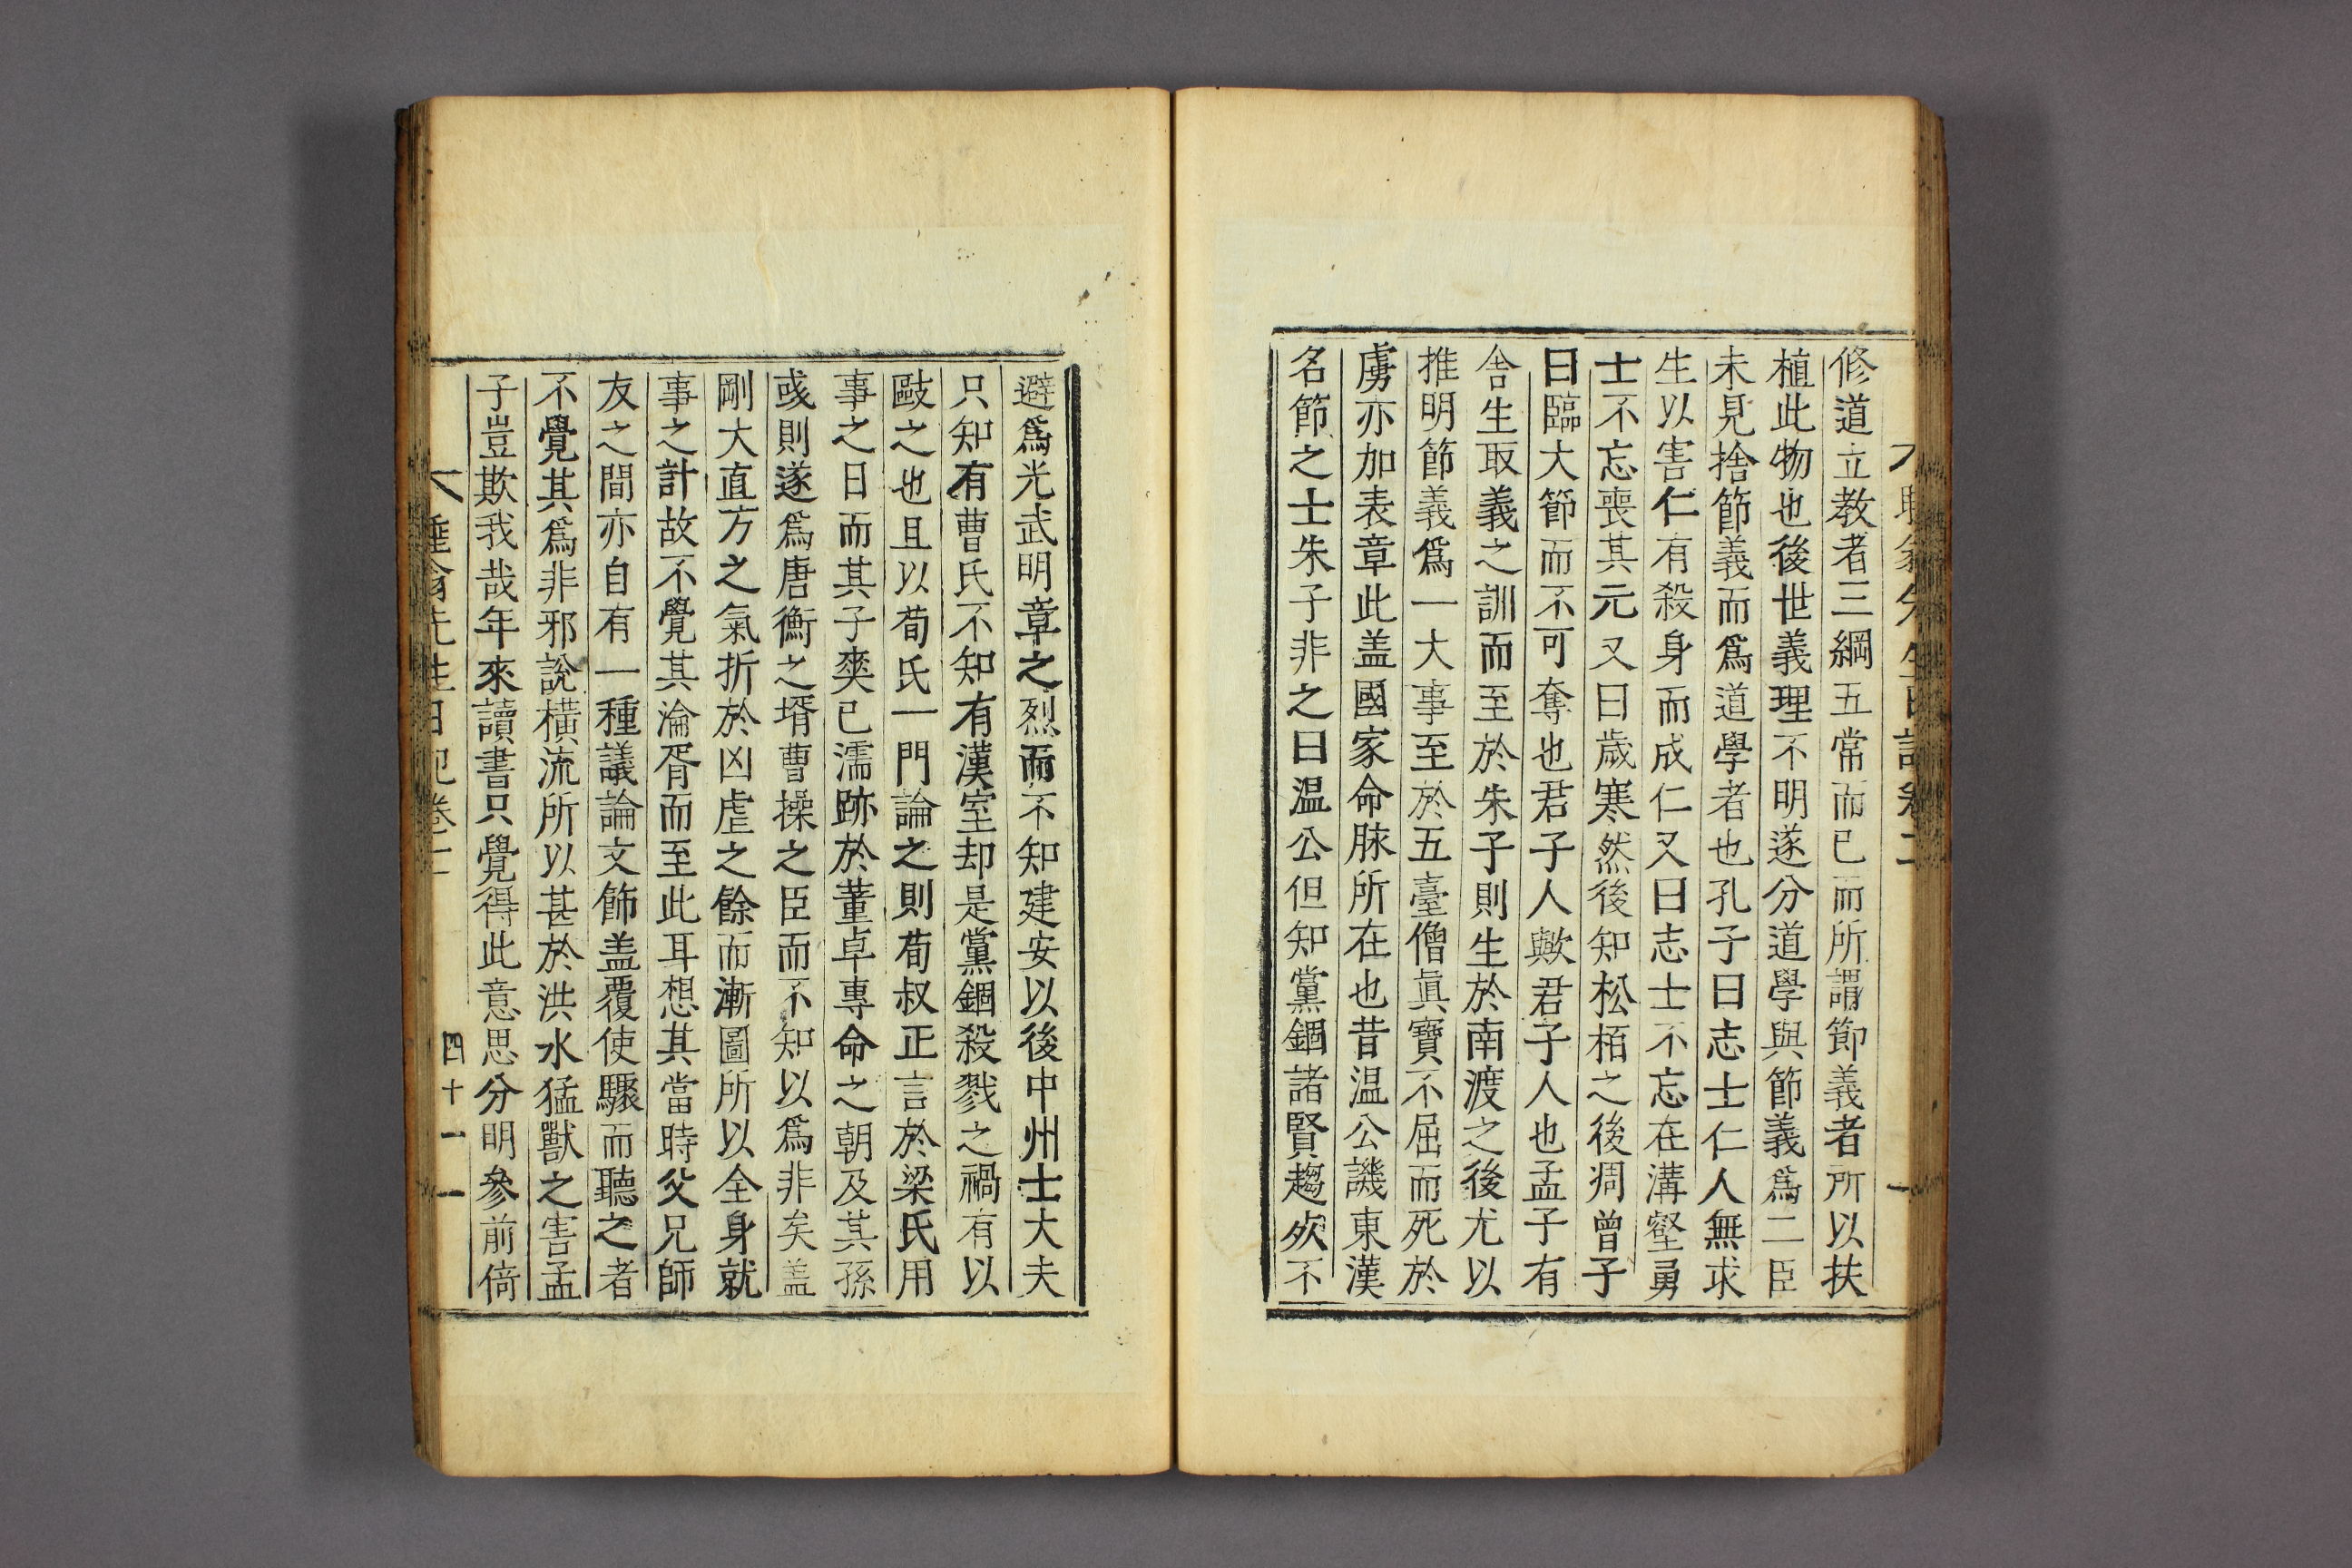 修道立教者三綱五常而已而所謂節義者所以扶
植此物也後世義理不明遂分道學與節義爲二臣
未見捨節義而爲道學者也孔子曰志士仁人無求
生以害仁有殺身而成仁又曰志士不忘在溝壑勇
士不忘喪其元又曰歲寒然後知松栢之後凋曾子
曰臨大節而不可奪也君子人歟君子人也孟子有
舍生取義之訓而至於朱子則生於南渡之後尤以
推明節義爲一大事至於五臺僧眞寶不屈而死於
虜亦加表章此盖國家命脉所在也昔温公譏東漢
名節之士朱子非之曰温公但知黨錮諸賢趨死不
避爲光武明章之烈而不知建安以後中州士大夫
只知有曹氏不知有漢室却是黨錮殺戮之禍有以
敺之也且以荀氏一門論之則荀叔正言於梁氏用
事之日而其子爽已濡跡於董卓專命之朝及其孫
彧則遂爲唐衡之壻曹操之臣而不知以爲非矣盖
剛大直方之氣折於凶虐之餘而漸圖所以全身就
事之計故不覺其淪胥而至此耳想其當時父兄師
友之間亦自有一種議論文飾盖覆使驟而聽之者
不覺其爲非邪說橫流所以甚於洪水猛獸之害孟
子豈欺我哉年來讀書只覺得此意思分明參前倚
先生日記卷二
四十一